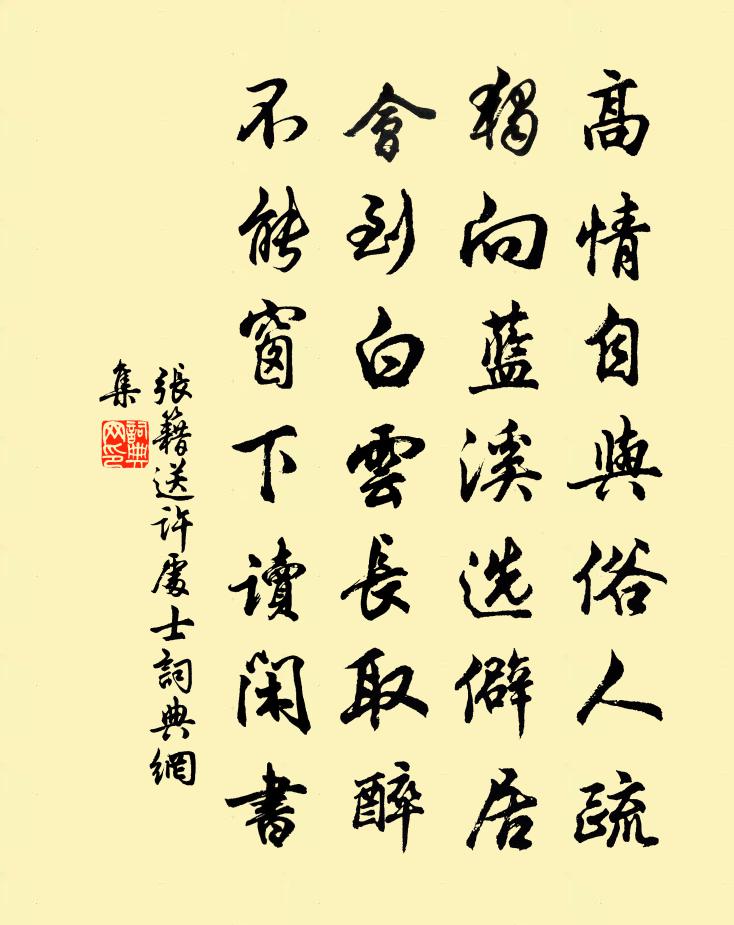 高情自與俗人疏
獨向藍溪选僻居
會到白雲長取醉
不能窗下讀閑書
張籍送許處士詞典網
集
詞典
网印